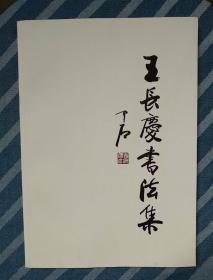 王長慶書法集
丁石